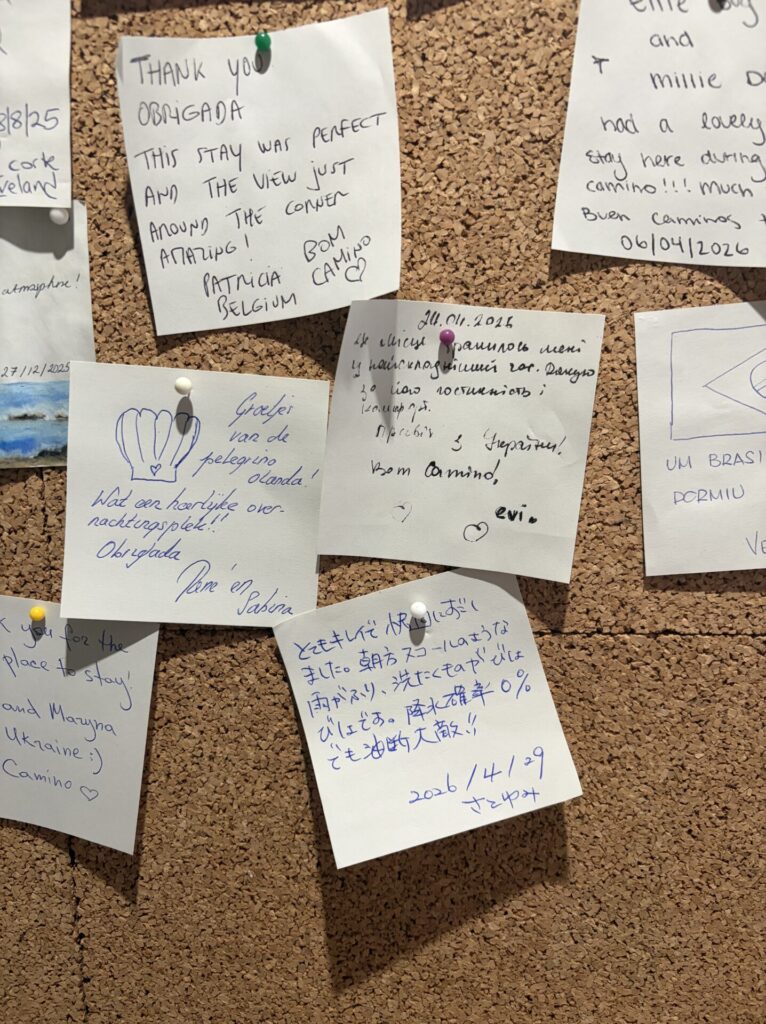 3/8/25
cork
atmosphere!
27/12/2025
THANK YOU
OBRIGADA
THIS STAY WAS PERFECT
AND THE VIEW JUST
AROUND THE CORNER
AMAZING!
BOM
PATRICIA CAMINO ♡
BELGIUM
and
millie
had a lovely
stay here during
camino!!! much
Buen caminos
06/04/2026
Groetjes
van de
pelegrino
olanda!
Wat een heerlijke over-
nachtingsplek!!
Obrigada
René en
Sabina
місце трапилось мені
у найскладніший час. Дякую
за його гостинність і
Привіт з України!
Bom Camino!
evi.
UM BRASI
DORMIU
VE
you for the
place to stay!
and Maryna
Ukraine :)
Camino ♡
とてもキレイで快適にすごし
ました。朝方スコールのような
雨がふり、洗たくものがびしょ
びしょです。降水確率0%
でも油断大敵!!
2026/4/29
さとゆみ